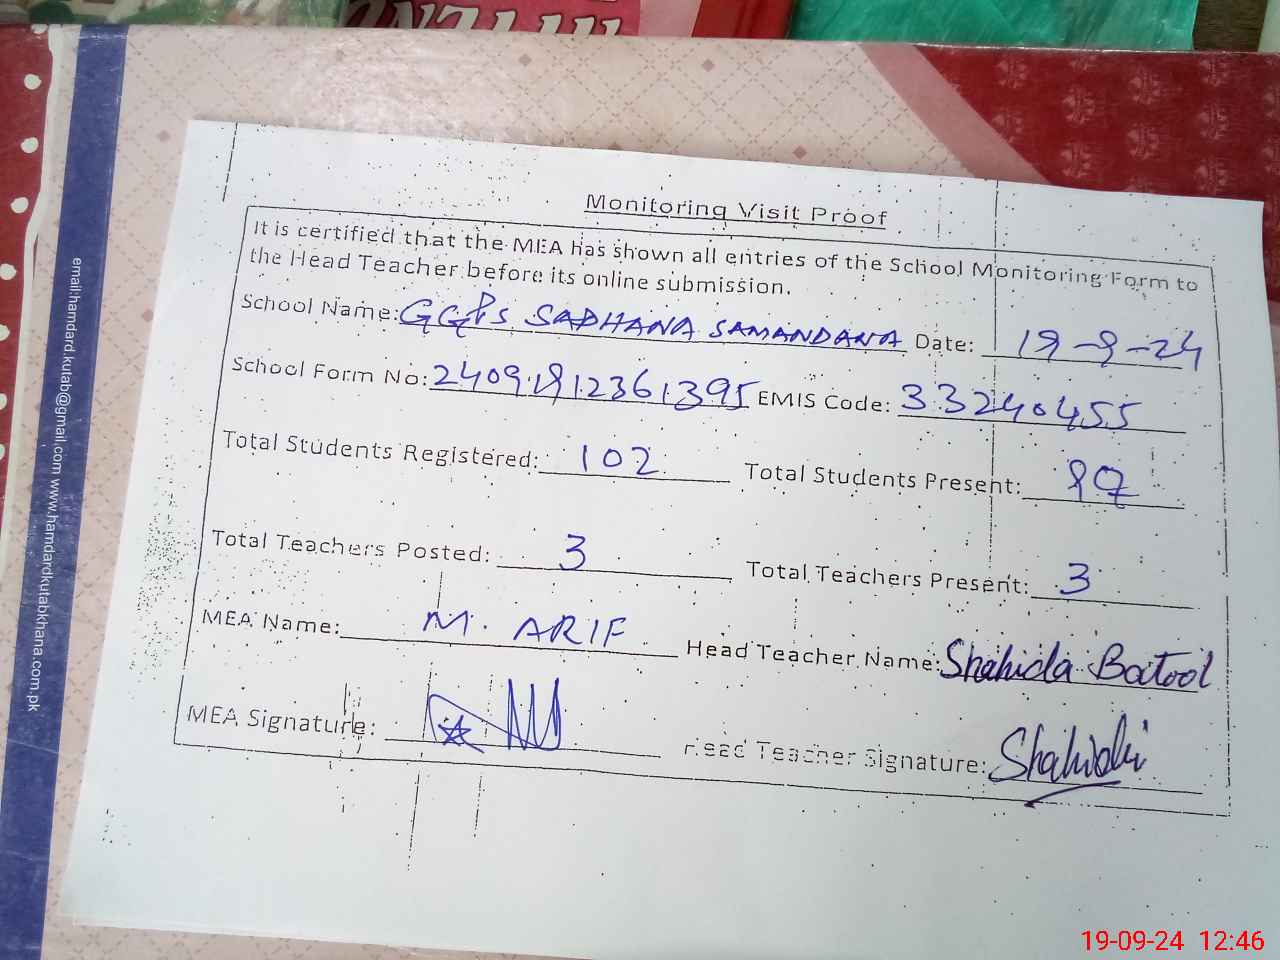 Monitoring Visit Proof
It is certified that the MEA has shown all entries of the School Monitoring Form to
the Head Teacher before its online submission.
School Name: GGPS SADHANA SAMANDANA Date: 19-9-24
School Form No: 24091912361395 EMIS Code: 33240455
Total Students Registered: 102 Total Students Present: 97
Total Teachers Posted: 3 Total Teachers Present: 3
MEA Name: M. ARIF Head Teacher Name: Shahida Batool
MEA Signature: Head Teacher Signature: Shahida
email:hamdard.kutab@gmail.com www.hamdardkutabkhana.com.pk
19-09-24 12:46